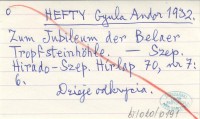 HEFTY Gyula Andor 1932.
Zum Jubileum der Belaer
Tropfsteinhöhle. — Szep.
Hirado-Szep. Hirlap 70, nr 7:
6.
Dzieje odkrycia.